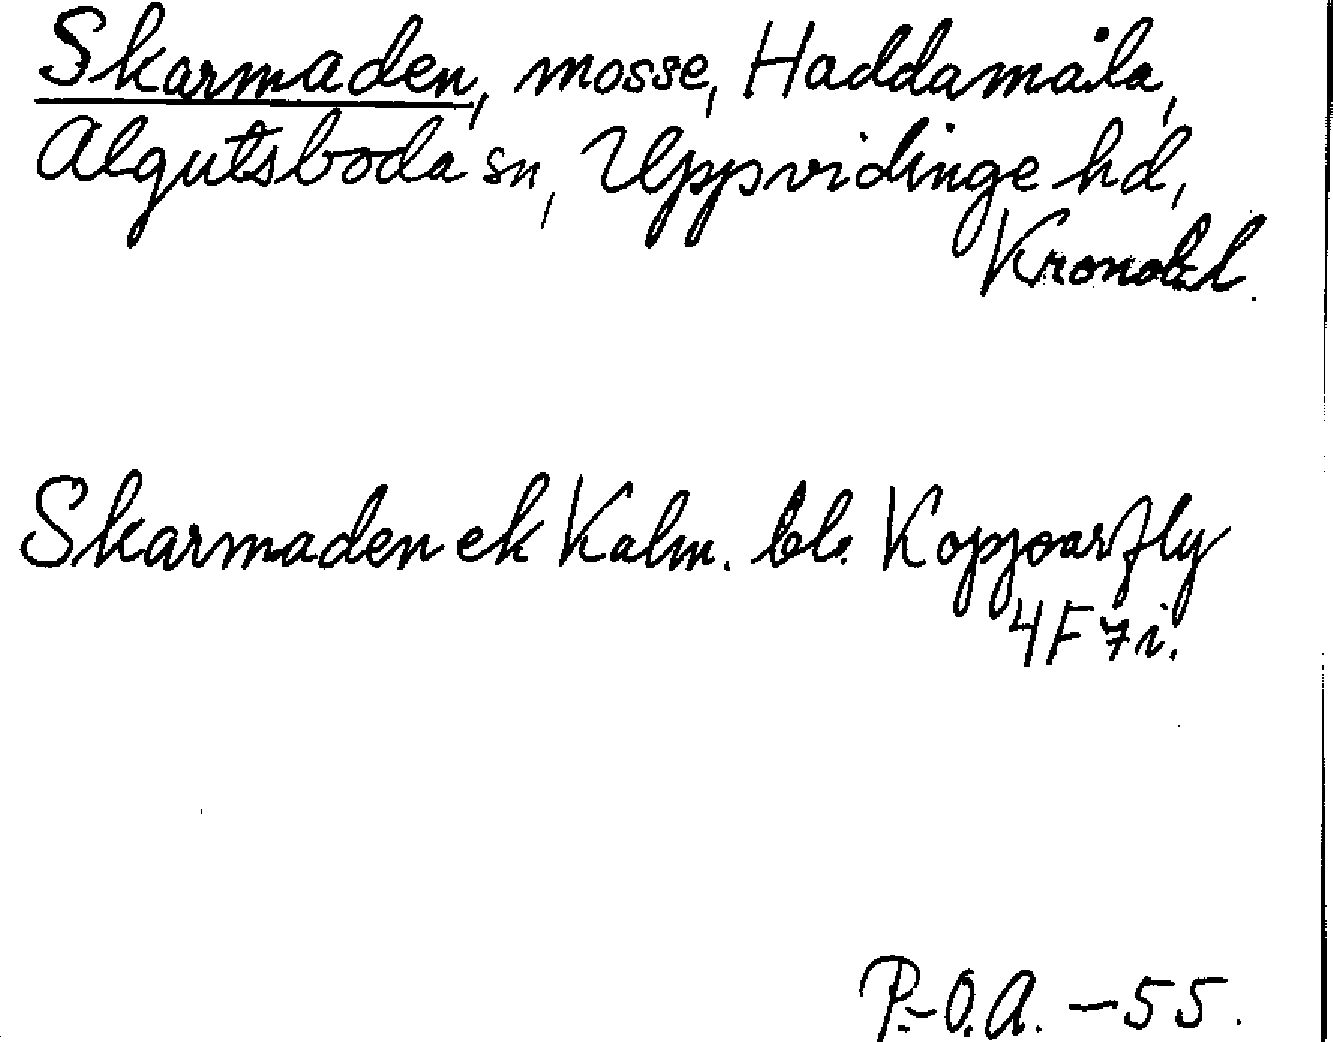 Skarmaden, mosse, Haddamåla,
Algutsboda sn, Uppvidinge hd,
Kronob.l.
Skarmaden ek Kalm. bl. Kopparfly
4F 7i.
P.-O.A. – 55.